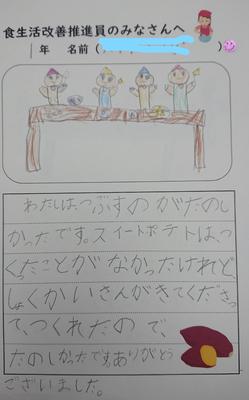 食生活改善推進員のみなさんへ
年 名前( )
わたしは、つぶすのがたのし
かったです。スイートポテトは、つ
くったことがなかったけれど、
しょくかいさんがきてくださっ
て、つくれたので、
たのしかったです。ありがとう
ございました。